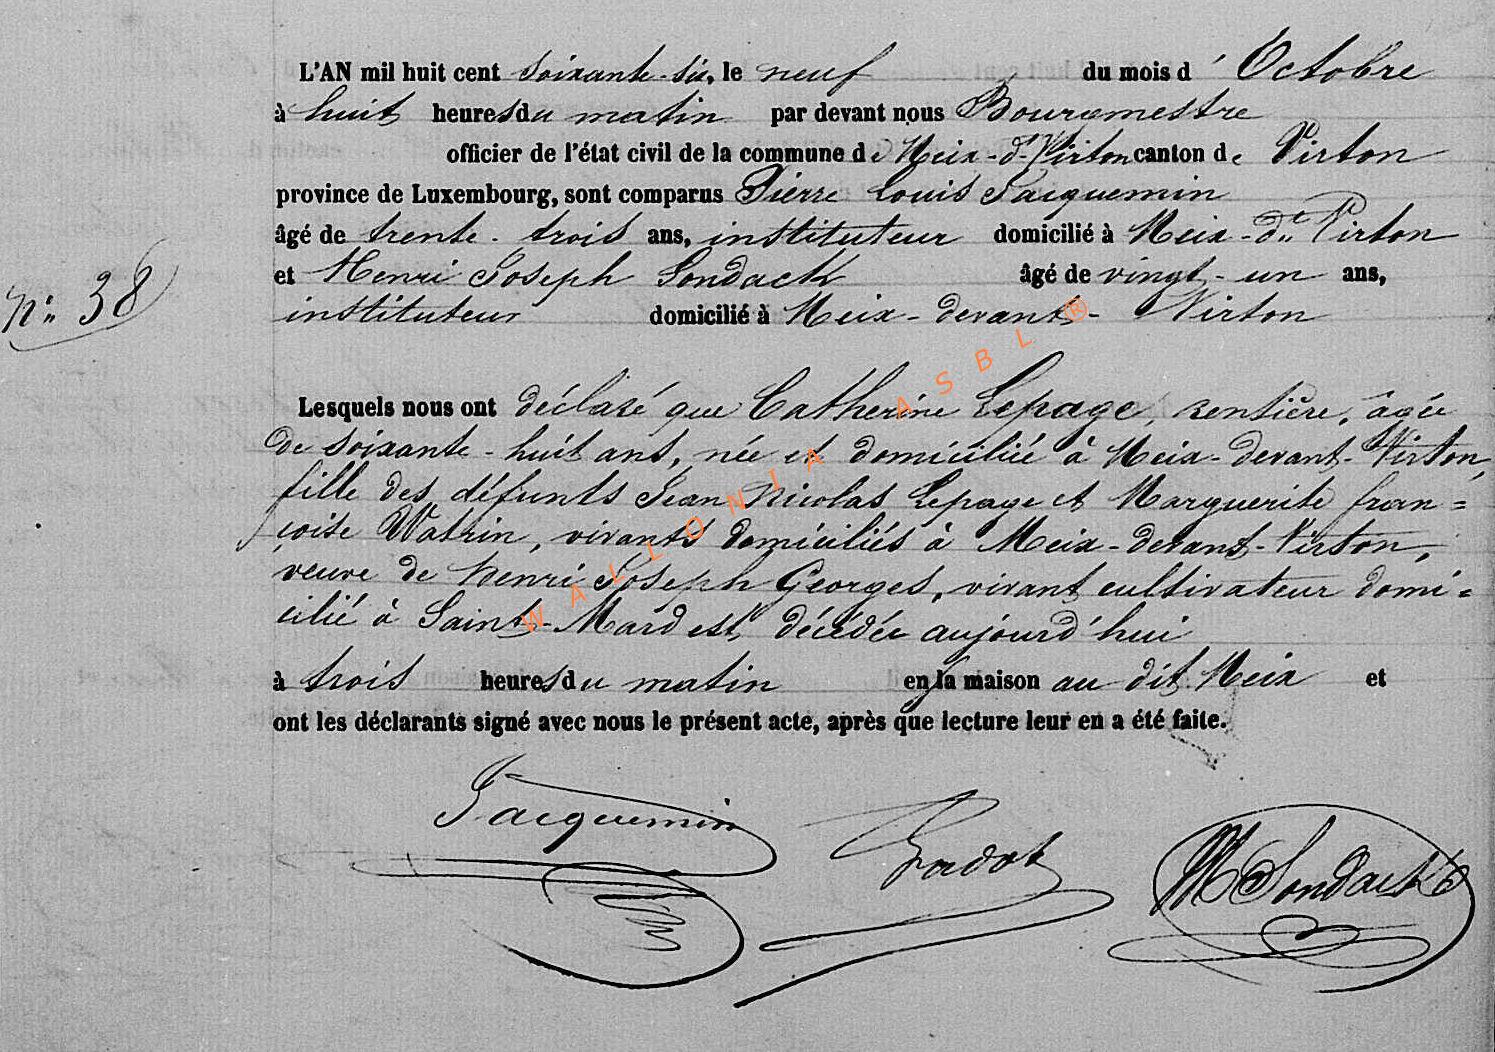 L'AN mil huit cent soixante-six, le neuf du mois d'Octobre
à huit heures du matin par devant nous Bourgmestre
officier de l'état civil de la commune de Meix-dt Virton canton de Virton
province de Luxembourg, sont comparus Pierre Louis Jacquemin
âgé de trente-trois ans, instituteur domicilié à Meix-dt Virton
et Henri Joseph Sondack âgé de vingt-un ans,
No 38
instituteur domicilié à Meix-devant-Virton
Lesquels nous ont déclaré que Catherine Lepage, rentière, âgée
de soixante-huit ans, née et domiciliée à Meix-devant-Virton,
fille des défunts Jean Nicolas Lepage et Marguerite fran=
çoise Watrin, vivants domiciliés à Meix-devant-Virton,
veuve de Henri Joseph Georges, vivant cultivateur domi=
cilié à Saint-Mard est décédée aujourd'hui
à trois heures du matin en la maison au dit Meix et
ont les déclarants signé avec nous le présent acte, après que lecture leur en a été faite.
WALLONIA ASBL ®
Jacquemin Sondack